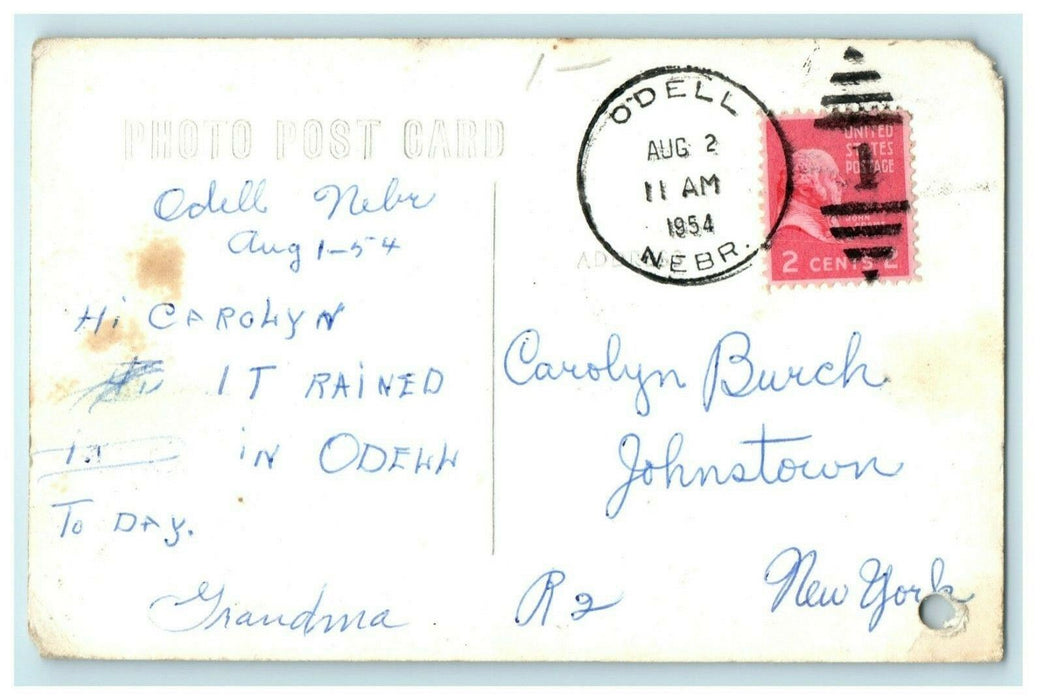 PHOTO POST CARD
Odell Nebr
Aug 1-54
Hi CAROLYN
IT RAINED
in
iN ODELL
To DAY.
Grandma
ODELL
AUG 2
11 AM
1954
NEBR.
UNITED
STATES
POSTAGE
1
2 CENTS 2
ADDRESS
Carolyn Burch
Johnstown
R2 New York